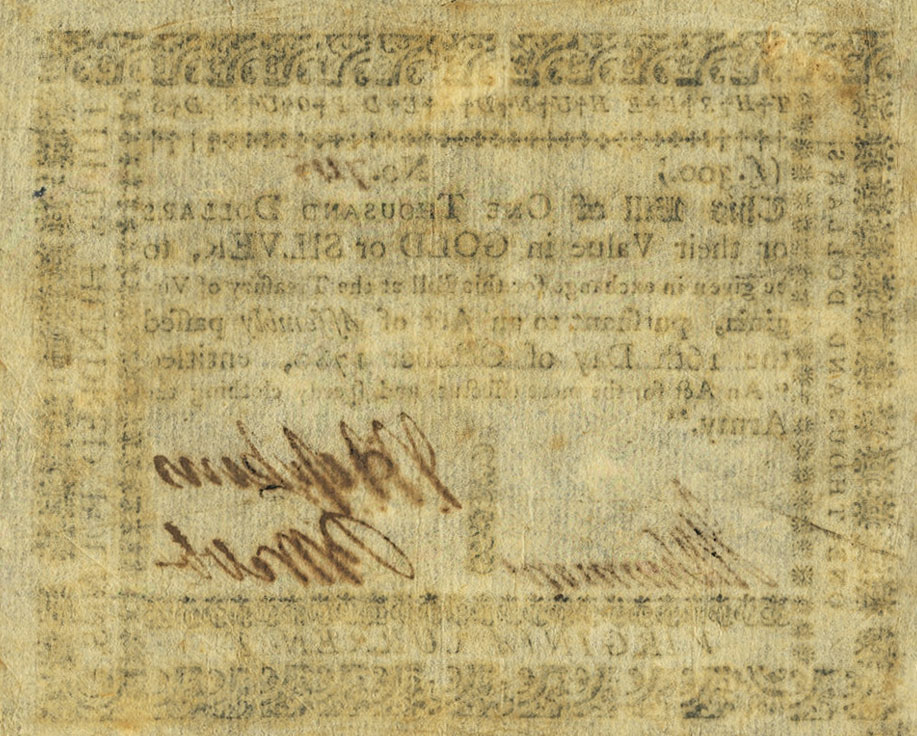 T+H+R+E+E H+U+N+D+R+E+D P+O+U+N+D+S
(£.300.) No.
This Bill of ONE THOUSAND DOLLARS
or their Value in GOLD or SILVER, to
be given in exchange for this Bill at the Treasury of Vir-
ginia, pursuant to an Act of Assembly passed
the 16th Day of October 1780, entitled
"An Act for the more effectual and speedy clothing the
Army."
J. Hopkins
VIRGINIA CURRENCY
THREE HUNDRED POUNDS
ONE THOUSAND DOLLARS